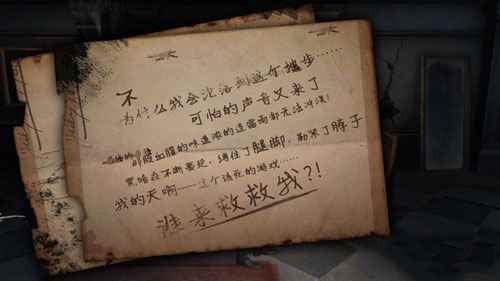 不
为什么我会沦落到这个地步……
可怕的声音又来了
腥血腥的味道浓的连雷雨都无法冲淡!
黑暗在不断蔓延,缠住了腿脚,勒紧了脖子
我的天啊——这个该死的游戏……
谁来救救我?!